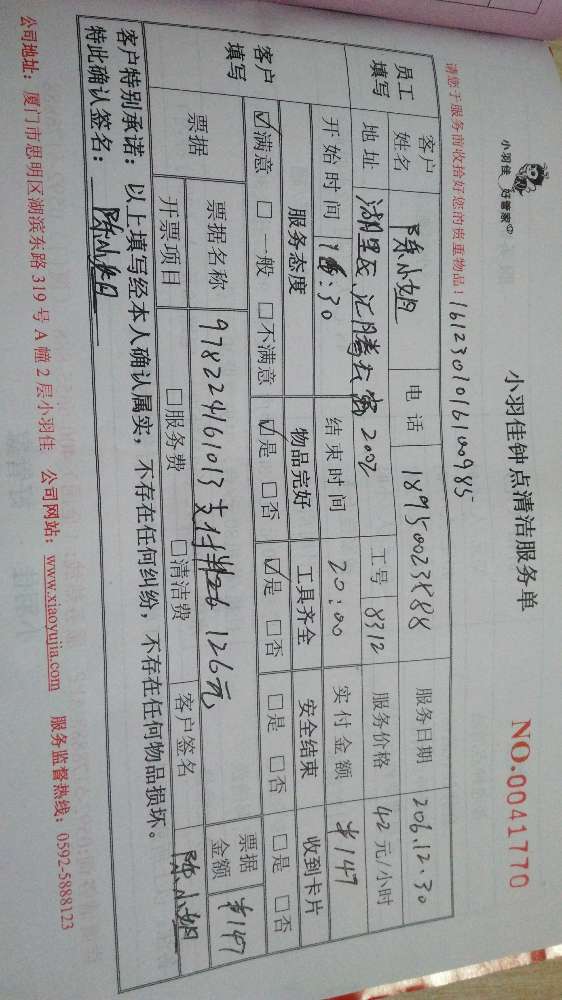 小羽佳 好管家
小羽佳钟点清洁服务单
NO.0041770
请您于服务前收拾好您的贵重物品！ 1612301016100985
员工填写 客户姓名 陈小姐 电话 18950023888 服务日期 206.12.30
地址 湖里区汇腾大富2002 工号 8312 服务价格 42元/小时
开始时间 16:30 结束时间 20:00 实付金额 ¥147
客户填写 服务态度 物品完好 工具齐全 安全结束 收到卡片
☑满意 □一般 □不满意 ☑是 □否 ☑是 □否 □是 □否 □是 □否
票据 票据名称 978224161013 支付 126元 票据金额 ¥147
开票项目 □服务费 □清洁费 客户签名 陈小姐
客户特别承诺：以上填写经本人确认属实，不存在任何纠纷，不存在任何物品损坏。
特此确认签名：陈小姐
公司地址：厦门市思明区湖滨东路319号A幢2层小羽佳 公司网站：www.xiaoyujia.com 服务监督热线：0592-5888123